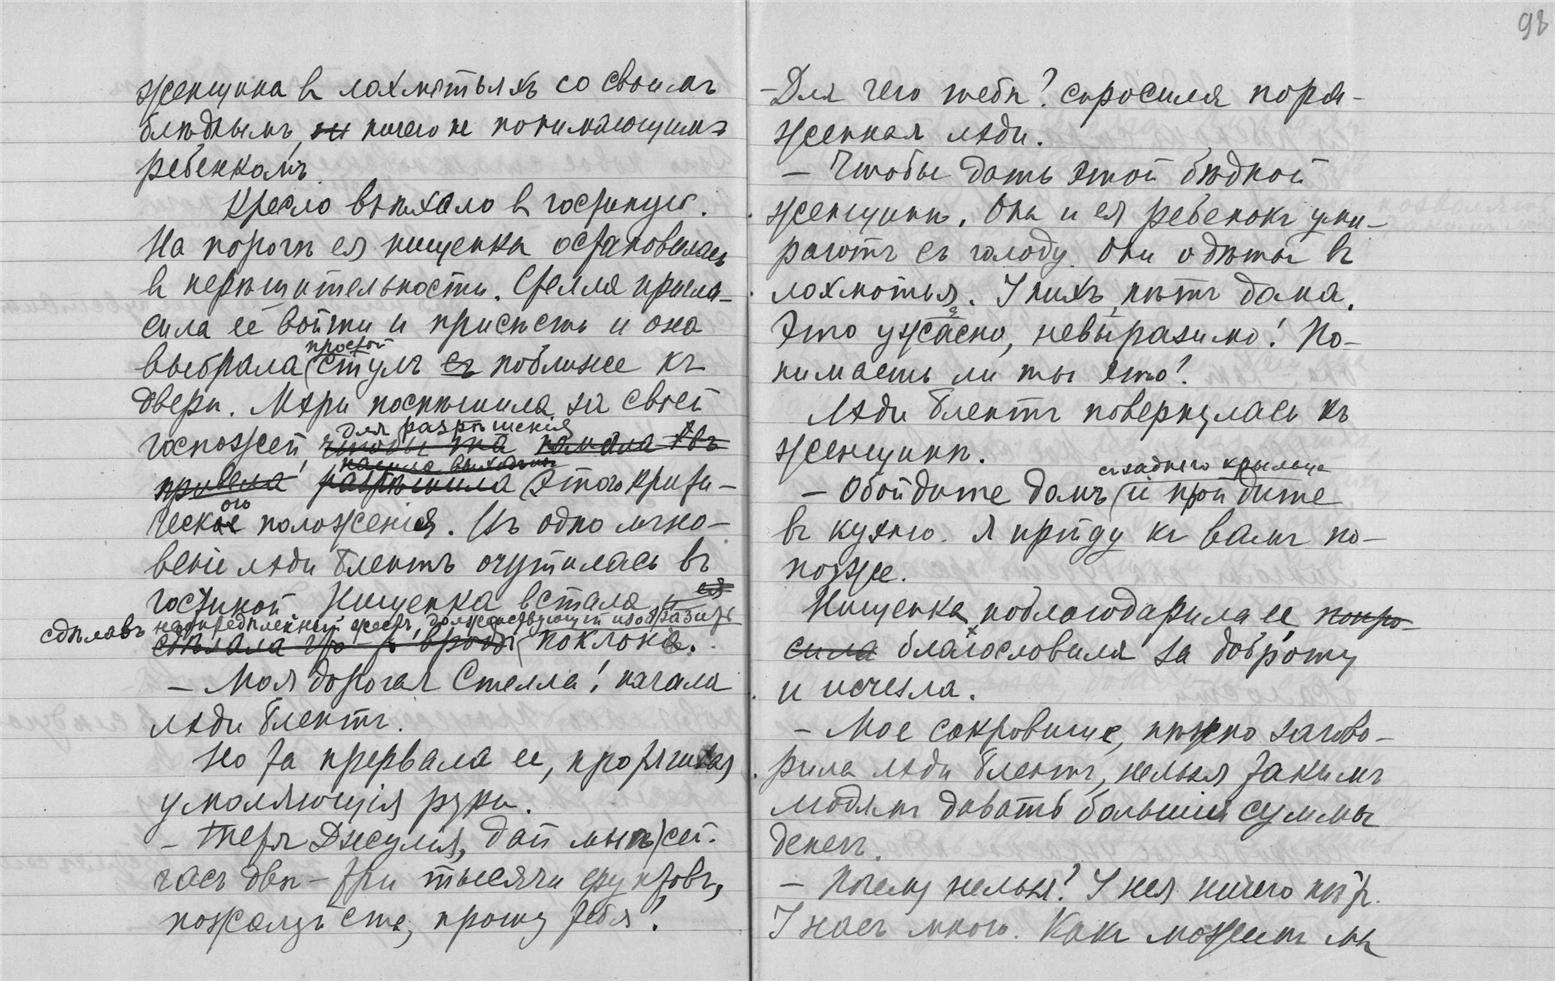 женщина в лохмотьяхъ со своимъ
блѣднымъ, ничего не понимающимъ
ребенкомъ.
Кресло въѣхало в гостиную.
На порогѣ ея нищенка остановилась
в нерѣшительности. Стелла пригла-
сила её войти и присѣсть и она
простой
выбрала стулъ поближе къ
двери. Мэри поспѣшила за своей
для разрѣшенія
госпожей чтобы та
нашла выходъ
привела разрѣшила этого крити-
ческого положенія. Въ одно мгно-
веніе лэди Блентъ очутилась въ
гостиной. Нищенка встала и
сдѣлавъ неопредѣленный жестъ, долженствующій изобразить
сдѣлала что-то вродѣ поклона.
— Моя дорогая Стелла! начала
лэди Блентъ.
Но та прервала ее, протягивая
умоляющія руки.
— Тетя Джулія, дай мнѣ сей-
часъ двѣ-три тысячи фунтовъ,
пожалуйста, прошу тебя!
98
— Для чего тебѣ? спросила пора-
женная лэди.
— Чтобы дать этой бѣдной
женщинѣ. Она и ея ребенокъ уми-
раютъ съ голоду. Они одѣты въ
лохмотья. У нихъ нѣтъ дома.
Это ужасно, невыразимо! По-
нимаешь ли ты это?
Лэди Блентъ повернулась къ
женщинѣ.
с задняго крыльца
— Обойдите домъ и пройдите
въ кухню. Я приду къ вамъ по-
позже.
Нищенка поблагодарила ее, попро-
сила благословила за доброту
и исчезла.
— Мое сокровище, нѣжно загово-
рила лэди Блентъ, нельзя такимъ
людямъ давать большія суммы
денегъ.
— Почему нельзя? У нея ничего нѣтъ.
У насъ много. Какъ можемъ мы